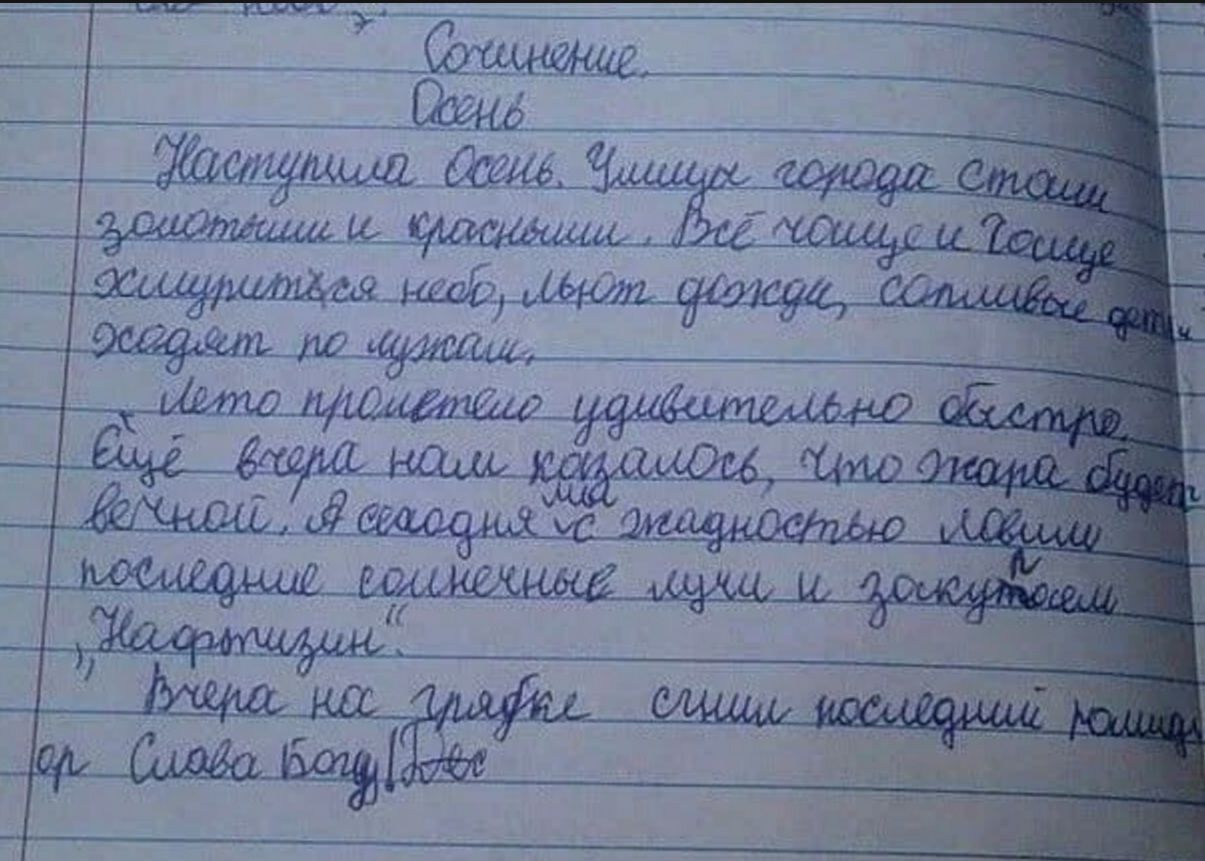 Сочинение.
Осень
Наступила осень. Улицы города стали
золотыми и красными. Всё чаще и чаще
хмурится небо, льют дожди, сопливые дети
ходят по лужам.
Лето пролетело удивительно быстро.
Ещё вчера нам казалось, что жара будет
вечной. А сегодня мы с жадностью ловим
последние солнечные лучи и закупаем
„Нафтизин“.
Вчера на грядке сгнил последний помид
ор Слава Богу!